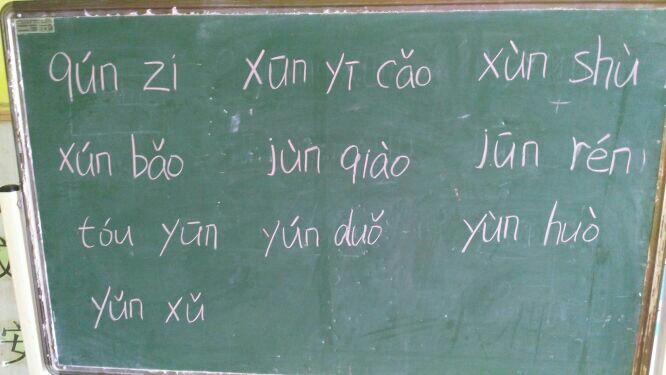 qún zi xūn yī cǎo xùn shù
xún bǎo jùn qiào jūn rén
tóu yūn yún duǒ yùn huò
yǔn xǔ
安